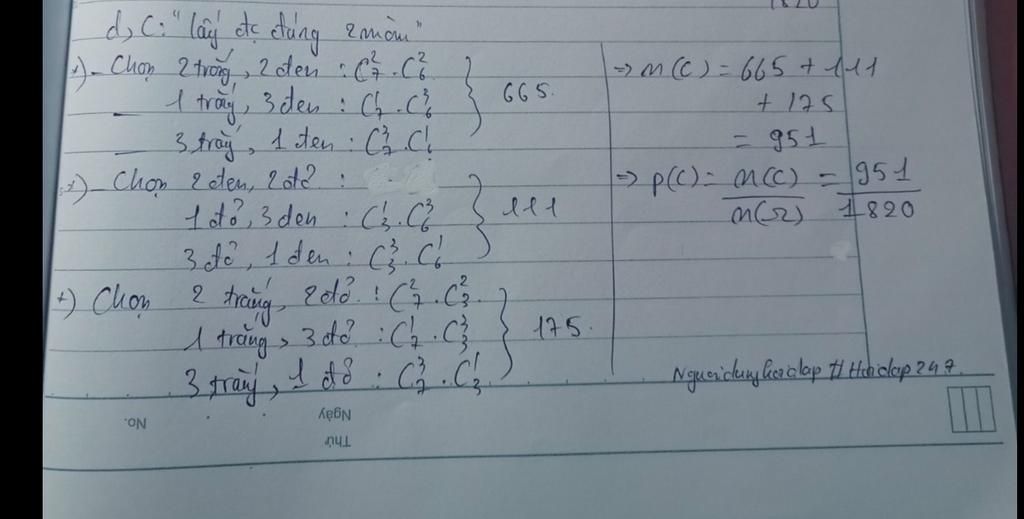 1820
d, C: "lấy đc đúng 2 màu"
+) - Chọn 2 trắng, 2 đen : C²₇ . C²₆
– 1 trắ, 3 đen : C¹₇ . C³₆
– 3 trắ, 1 đen : C³₇ . C¹₆
} 665.
+) - Chọn 2 đen, 2 đỏ :
1 đỏ, 3 đen : C¹₃ . C³₆
3 đỏ, 1 đen : C³₃ . C¹₆
} 111
+) Chọn 2 trắng, 2 đỏ : C²₇ . C²₃
1 trắng, 3 đỏ : C¹₇ . C³₃
3 trắng, 1 đỏ : C³₇ . C¹₃
} 175.
=> n(C) = 665 + 111
+ 175
= 951
=> p(C) = n(C)/n(Ω) = 951/1820
Nguoidunghoidap # Hoidap247.
No.
Ngày
Thứ